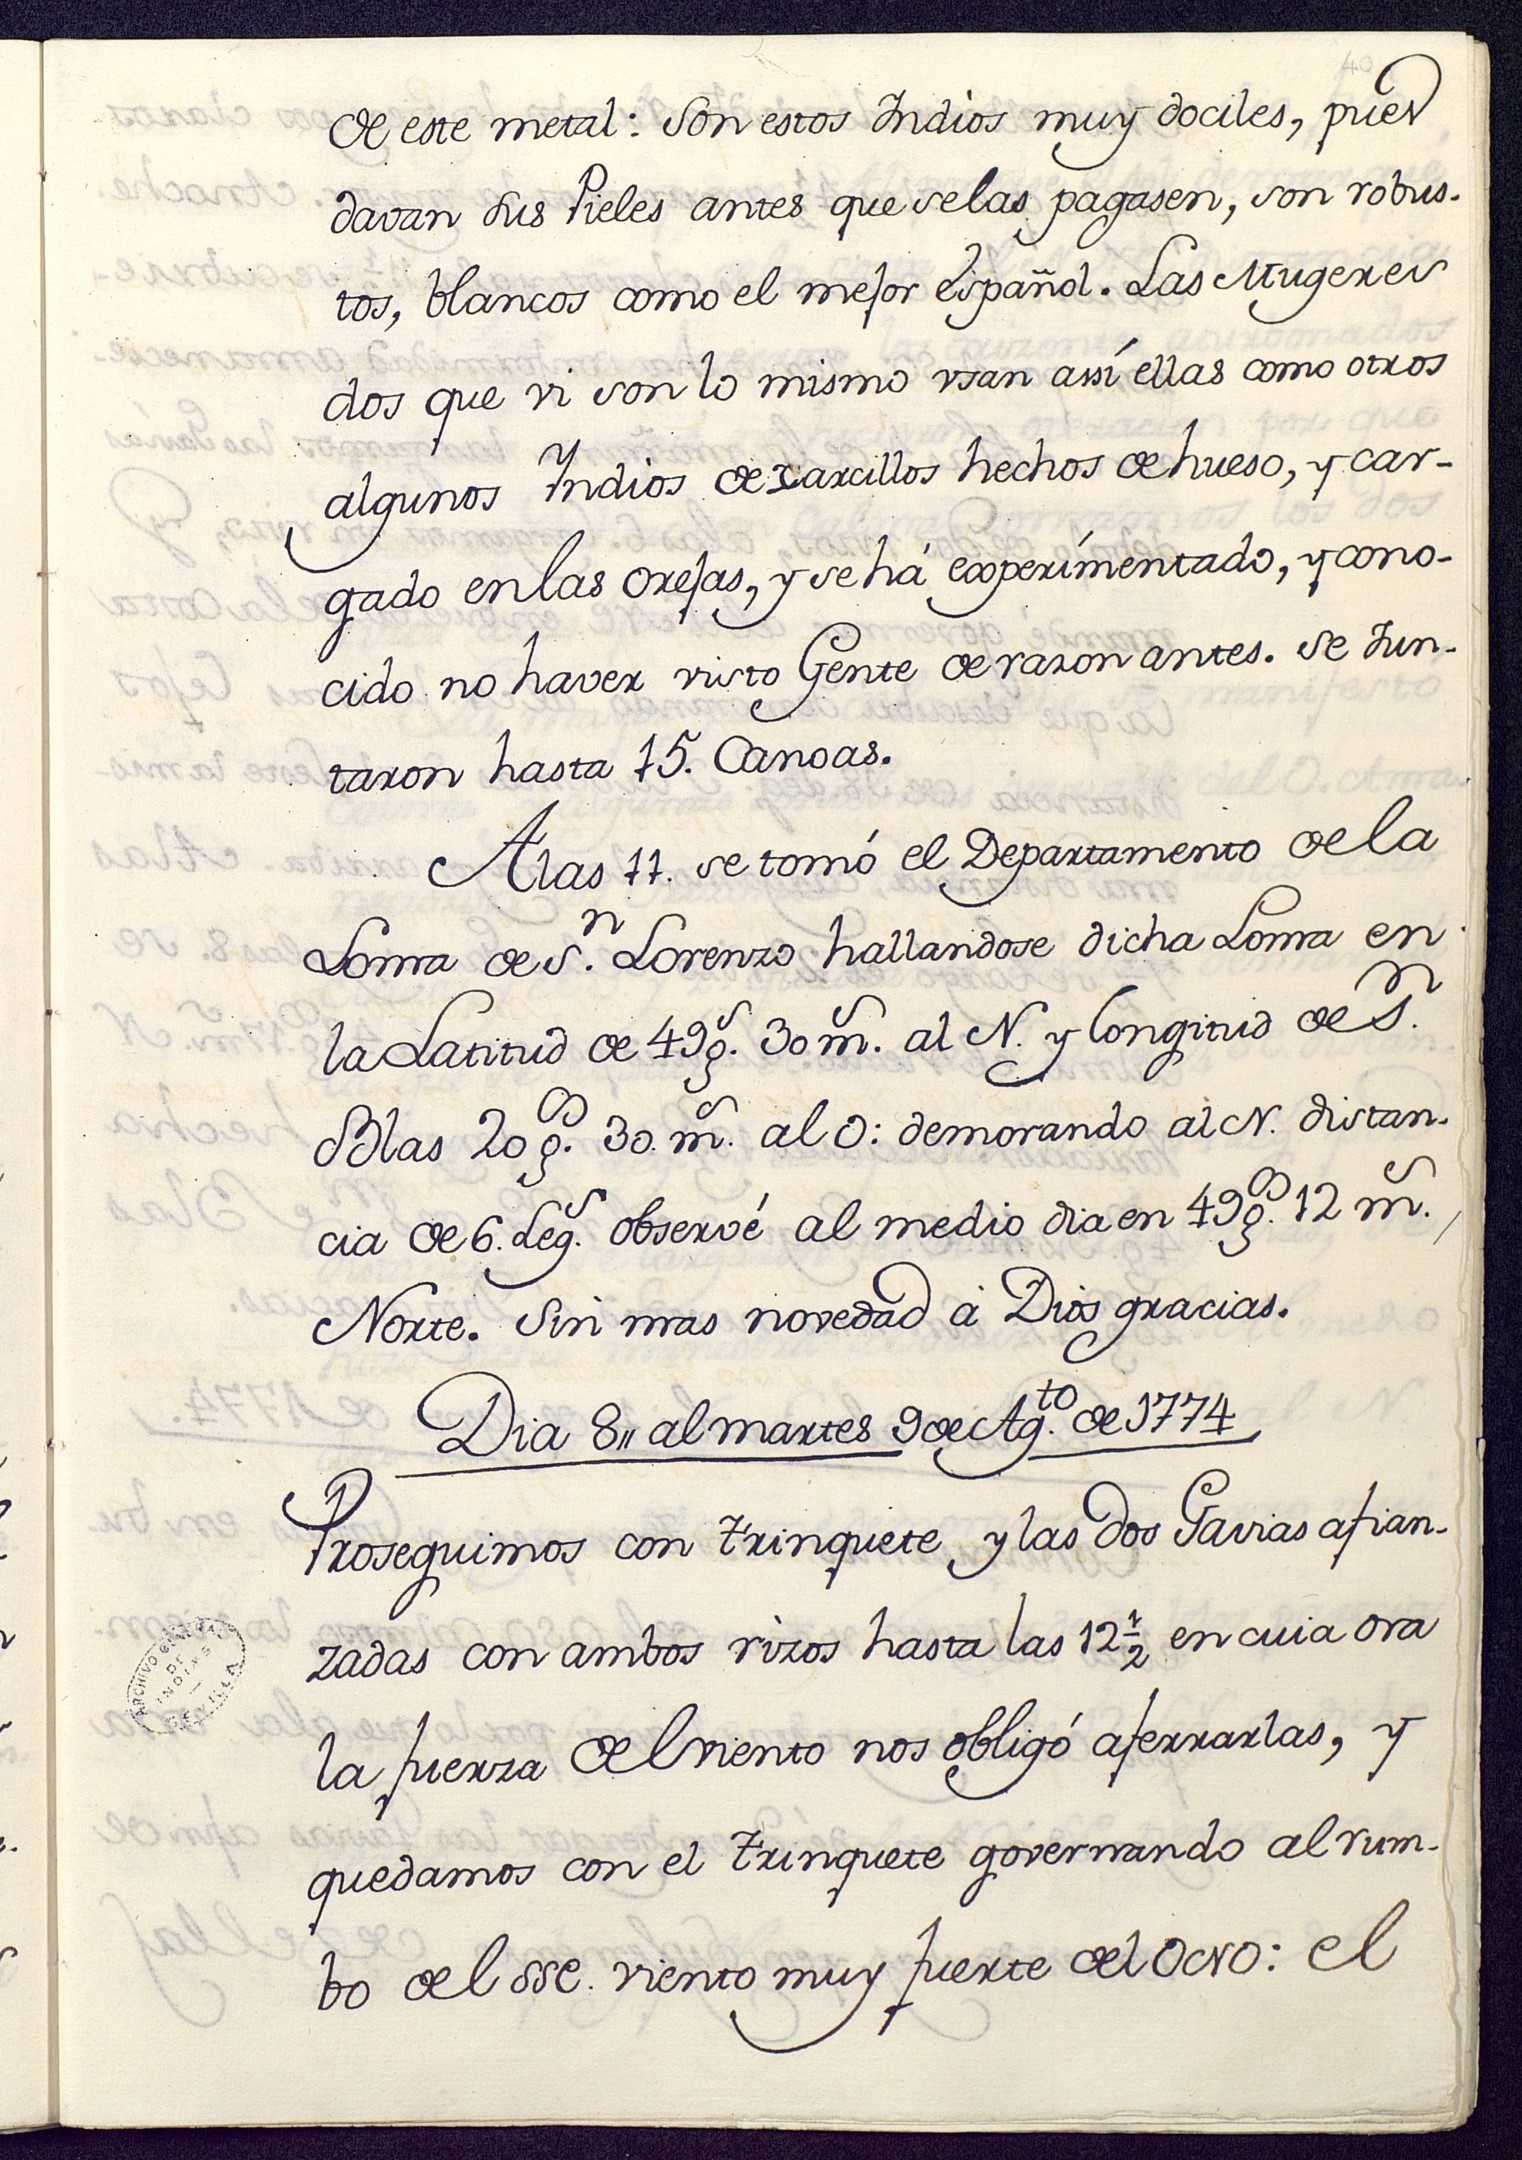 40
de este metal: Son estos Indios muy dociles, pues
davan sus Pieles antes que selas pagasen, son robus-
tos, blancos como el mejor Español. Las Mugeres
dos que vi son lo mismo vsan assí ellas como otros
algunos Indios de zarcillos hechos de hueso, y car-
gado en las orejas, y se há experímentado, y cono-
cido no haver visto Gente de razon antes. Se Jun-
taron hasta 15. Canoas.
Alas 11. se tomó el Departamento de la
Loma de Sn. Lorenzo hallandose dicha Loma en
la Latitud de 49 gs. 30 ms. al N. y Longitud de Sn.
Blas 20 gs. 30. ms. al O: demorando al N. distan-
cia de 6. Legs. observé al medio dia en 49 gs. 12 ms.
Norte. Sin mas novedad á Dios gracias.
Dia 8,, al martes 9 de Agto. de 1774
Proseguimos con trinquete y las dos Gavias afian-
zadas con ambos rizos hasta las 12 1/2 en cuia ora
la fuerza del viento nos obligó aferrarlas, y
quedamos con el trinquete governando al rum-
bo del SSE. viento muy fuerte del ONO: el
ARCHIVO GENERAL
DE
INDIAS
SEVILLA